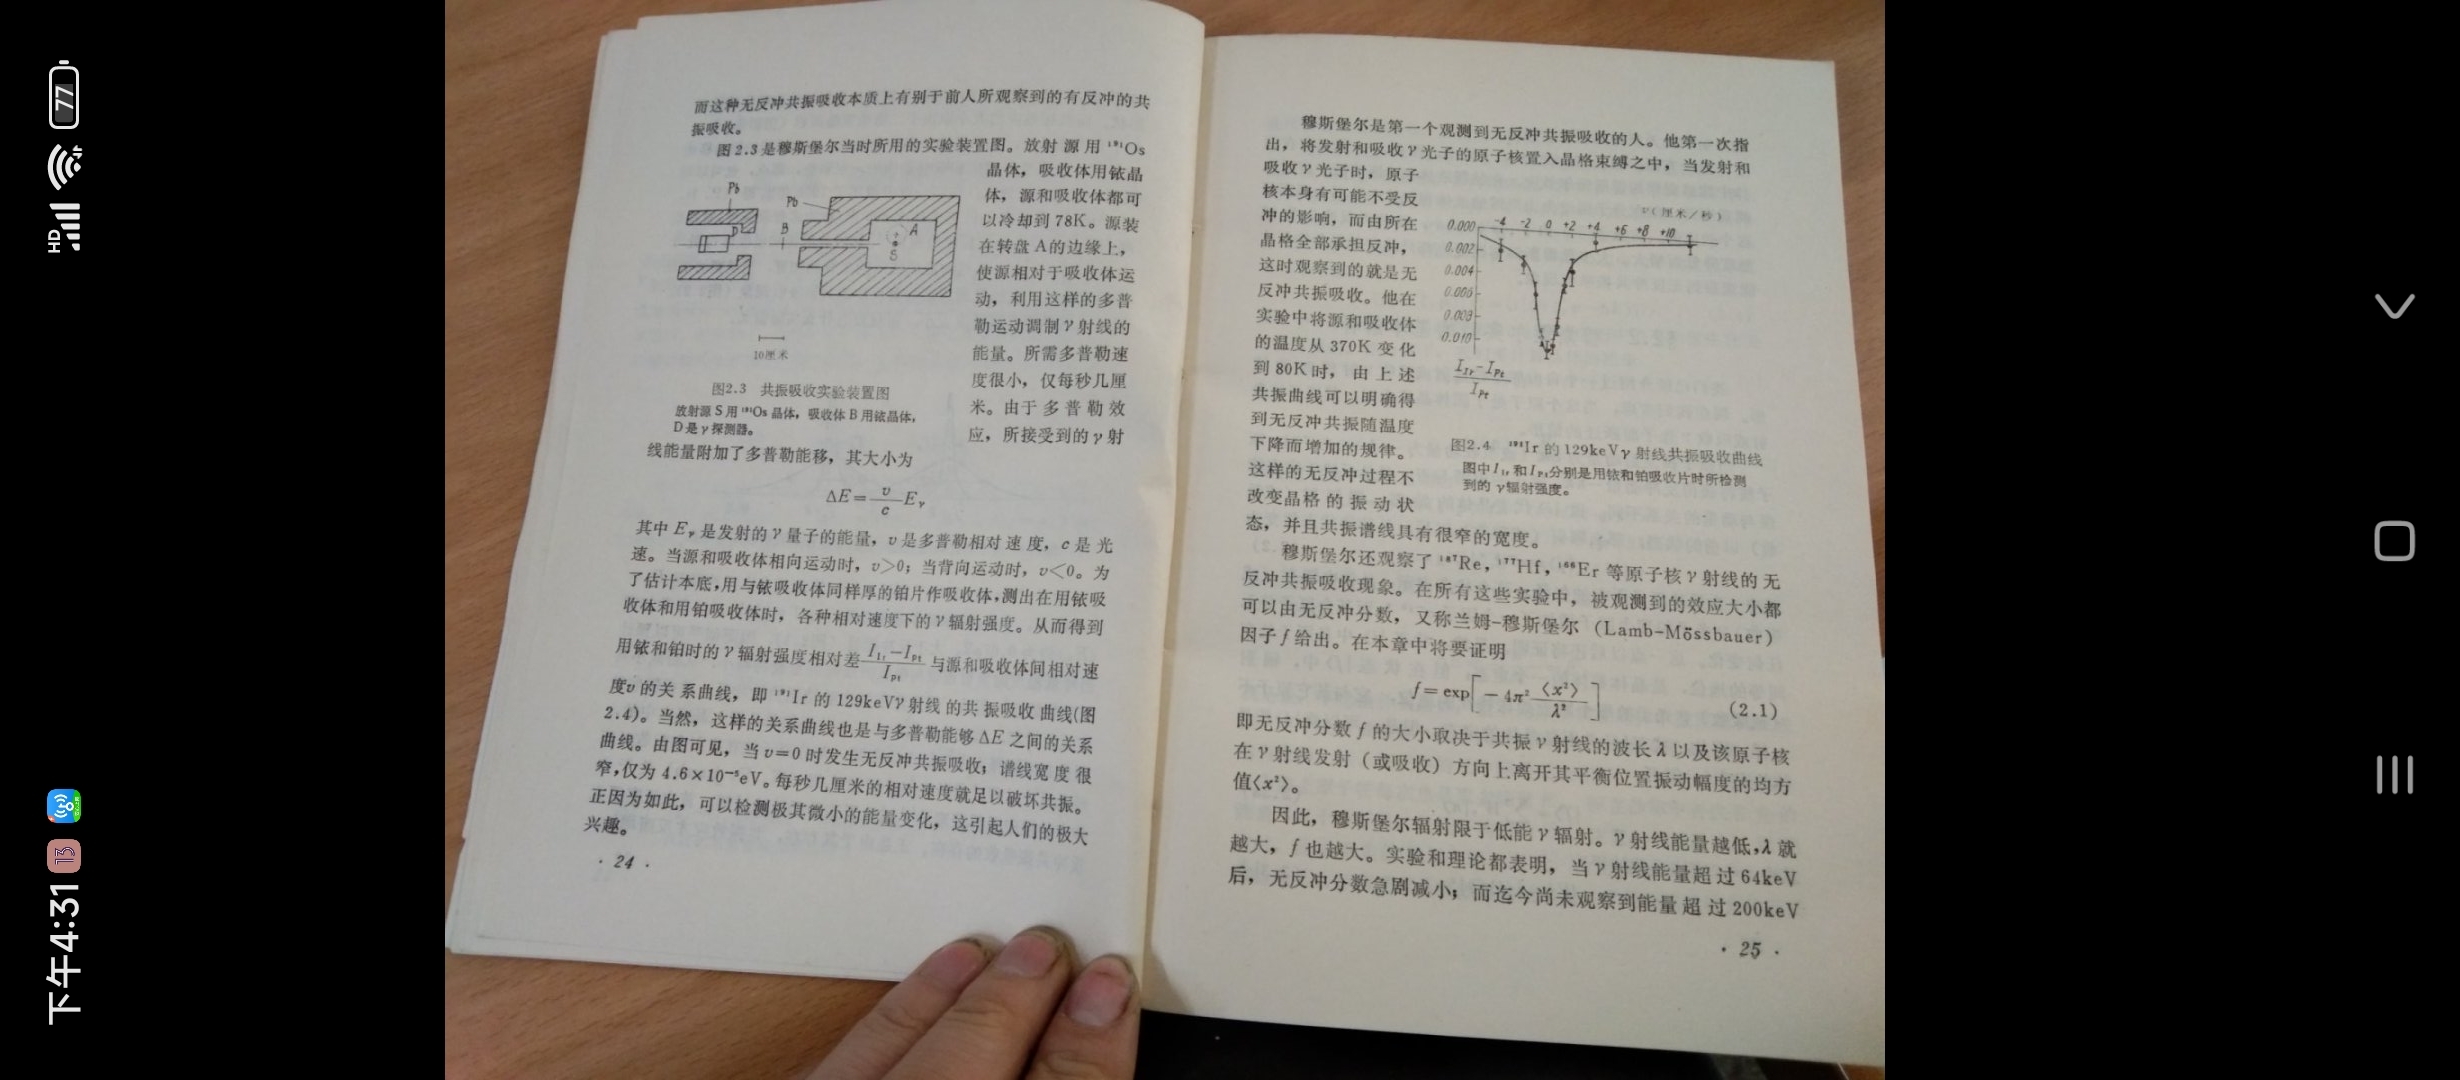 而这种无反冲共振吸收本质上有别于前人所观察到的有反冲的共
振吸收。
图2.3是穆斯堡尔当时所用的实验装置图。放射源用¹⁹¹Os
晶体，吸收体用铱晶
体，源和吸收体都可
以冷却到78K。源装
在转盘A的边缘上，
使源相对于吸收体运
动，利用这样的多普
勒运动调制γ射线的
能量。所需多普勒速
度很小，仅每秒几厘
米。由于多普勒效
应，所接受到的γ射
Pb
Pb
D
B
A
S
10厘米
图2.3 共振吸收实验装置图
放射源S用¹⁹¹Os晶体，吸收体B用铱晶体，
D是γ探测器。
线能量附加了多普勒能移，其大小为
ΔE=v/c Eγ
其中Eγ是发射的γ量子的能量，v是多普勒相对速度，c是光
速。当源和吸收体相向运动时，v>0；当背向运动时，v<0。为
了估计本底，用与铱吸收体同样厚的铂片作吸收体，测出在用铱吸
收体和用铂吸收体时，各种相对速度下的γ辐射强度。从而得到
用铱和铂时的γ辐射强度相对差(I_Ir-I_Pt)/I_Pt与源和吸收体间相对速
度v的关系曲线，即¹⁹¹Ir的129keVγ射线的共振吸收曲线(图
2.4)。当然，这样的关系曲线也是与多普勒能够ΔE之间的关系
曲线。由图可见，当v=0时发生无反冲共振吸收；谱线宽度很
窄，仅为4.6×10⁻⁵eV。每秒几厘米的相对速度就足以破坏共振。
正因为如此，可以检测极其微小的能量变化，这引起人们的极大
兴趣。
·24·
穆斯堡尔是第一个观测到无反冲共振吸收的人。他第一次指
出，将发射和吸收γ光子的原子核置入晶格束缚之中，当发射和
吸收γ光子时，原子
核本身有可能不受反
冲的影响，而由所在
晶格全部承担反冲，
这时观察到的就是无
反冲共振吸收。他在
实验中将源和吸收体
的温度从370K变化
到80K时，由上述
共振曲线可以明确得
到无反冲共振随温度
下降而增加的规律。
这样的无反冲过程不
改变晶格的振动状
v(厘米/秒)
-4 -2 0 +2 +4 +6 +8 +10
0.000
0.002
0.004
0.006
0.008
0.010
(I_Ir-I_Pt)/I_Pt
图2.4 ¹⁹¹Ir的129keVγ射线共振吸收曲线
图中I_Ir和I_Pt分别是用铱和铂吸收片时所检测
到的γ辐射强度。
态，并且共振谱线具有很窄的宽度。
穆斯堡尔还观察了¹⁸⁷Re，¹⁷⁷Hf，¹⁶⁶Er等原子核γ射线的无
反冲共振吸收现象。在所有这些实验中，被观测到的效应大小都
可以由无反冲分数，又称兰姆-穆斯堡尔（Lamb-Mössbauer）
因子f给出。在本章中将要证明
f=exp[-4π²⟨x²⟩/λ²] (2.1)
即无反冲分数f的大小取决于共振γ射线的波长λ以及该原子核
在γ射线发射（或吸收）方向上离开其平衡位置振动幅度的均方
值⟨x²⟩。
因此，穆斯堡尔辐射限于低能γ辐射。γ射线能量越低，λ就
越大，f也越大。实验和理论都表明，当γ射线能量超过64keV
后，无反冲分数急剧减小；而迄今尚未观察到能量超过200keV
·25·
下午4:31
13
HD
77